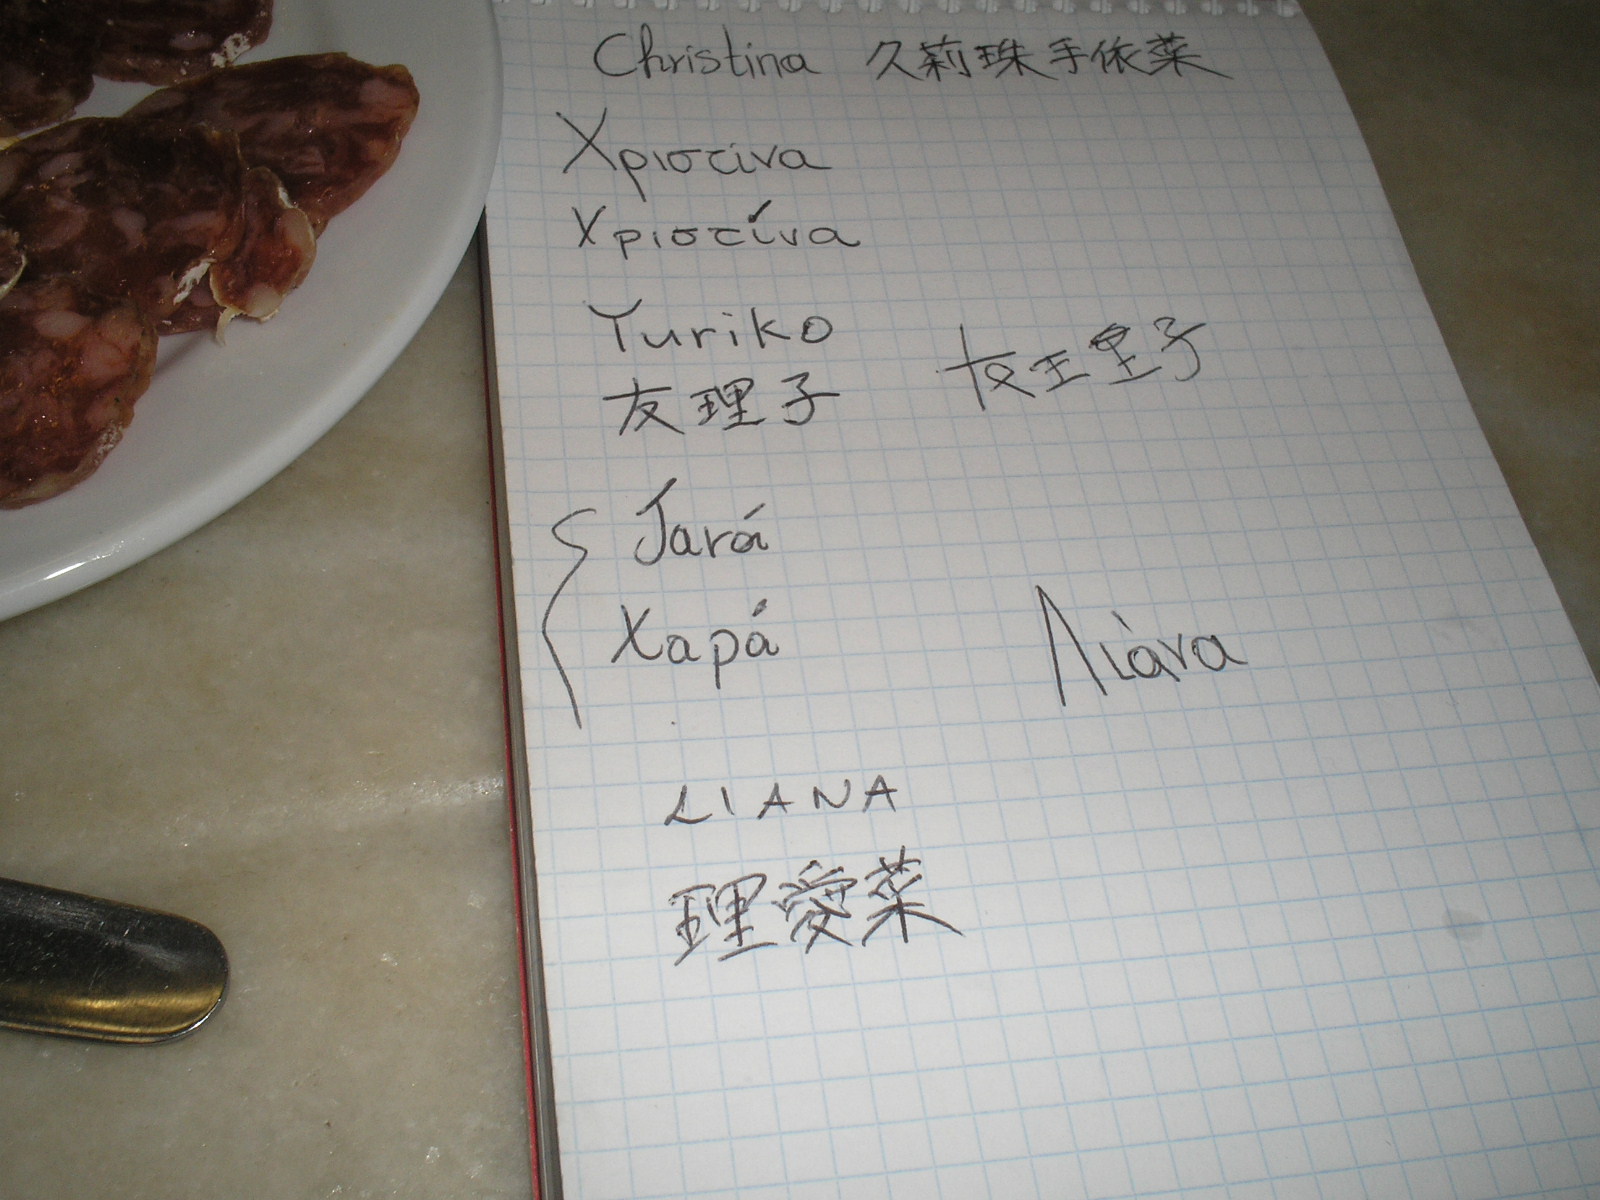 Christina 久莉珠手依菜
Χριστίνα
Χριστίνα
Yuriko
友理子 友理子
Jará
Χαρά
Λιάνα
LIANA
理愛菜